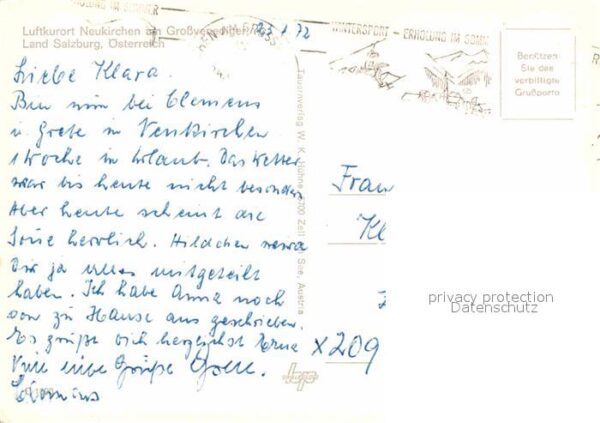 Luftkurort Neukirchen am Großvenediger
Land Salzburg, Österreich
23.7.72
WINTERSPORT - ERHOLUNG IM SOMM
ERHOLUNG IM SOMMER
Benützen
Sie das
verbilligte
Grußporto
Liebe Klara.
Bin nun bei Clemens
u. Grete in Neukirchen
1 Woche in Urlaub. Das Wetter
war bis heute nicht besonders
Aber heute scheint die
Sonne herrlich. Hildchen
Dir ja alles mitgeteilt
haben. Ich habe Anna noch
von zu Hause aus geschrieben.
Es grüßt dich herzlichst Erna
Viele liebe Grüße Grete.
Clemens
Tauernverlag W. K. Kühne 5700 Zell See, Austria
Frau
Kl
x209
privacy protection
Datenschutz